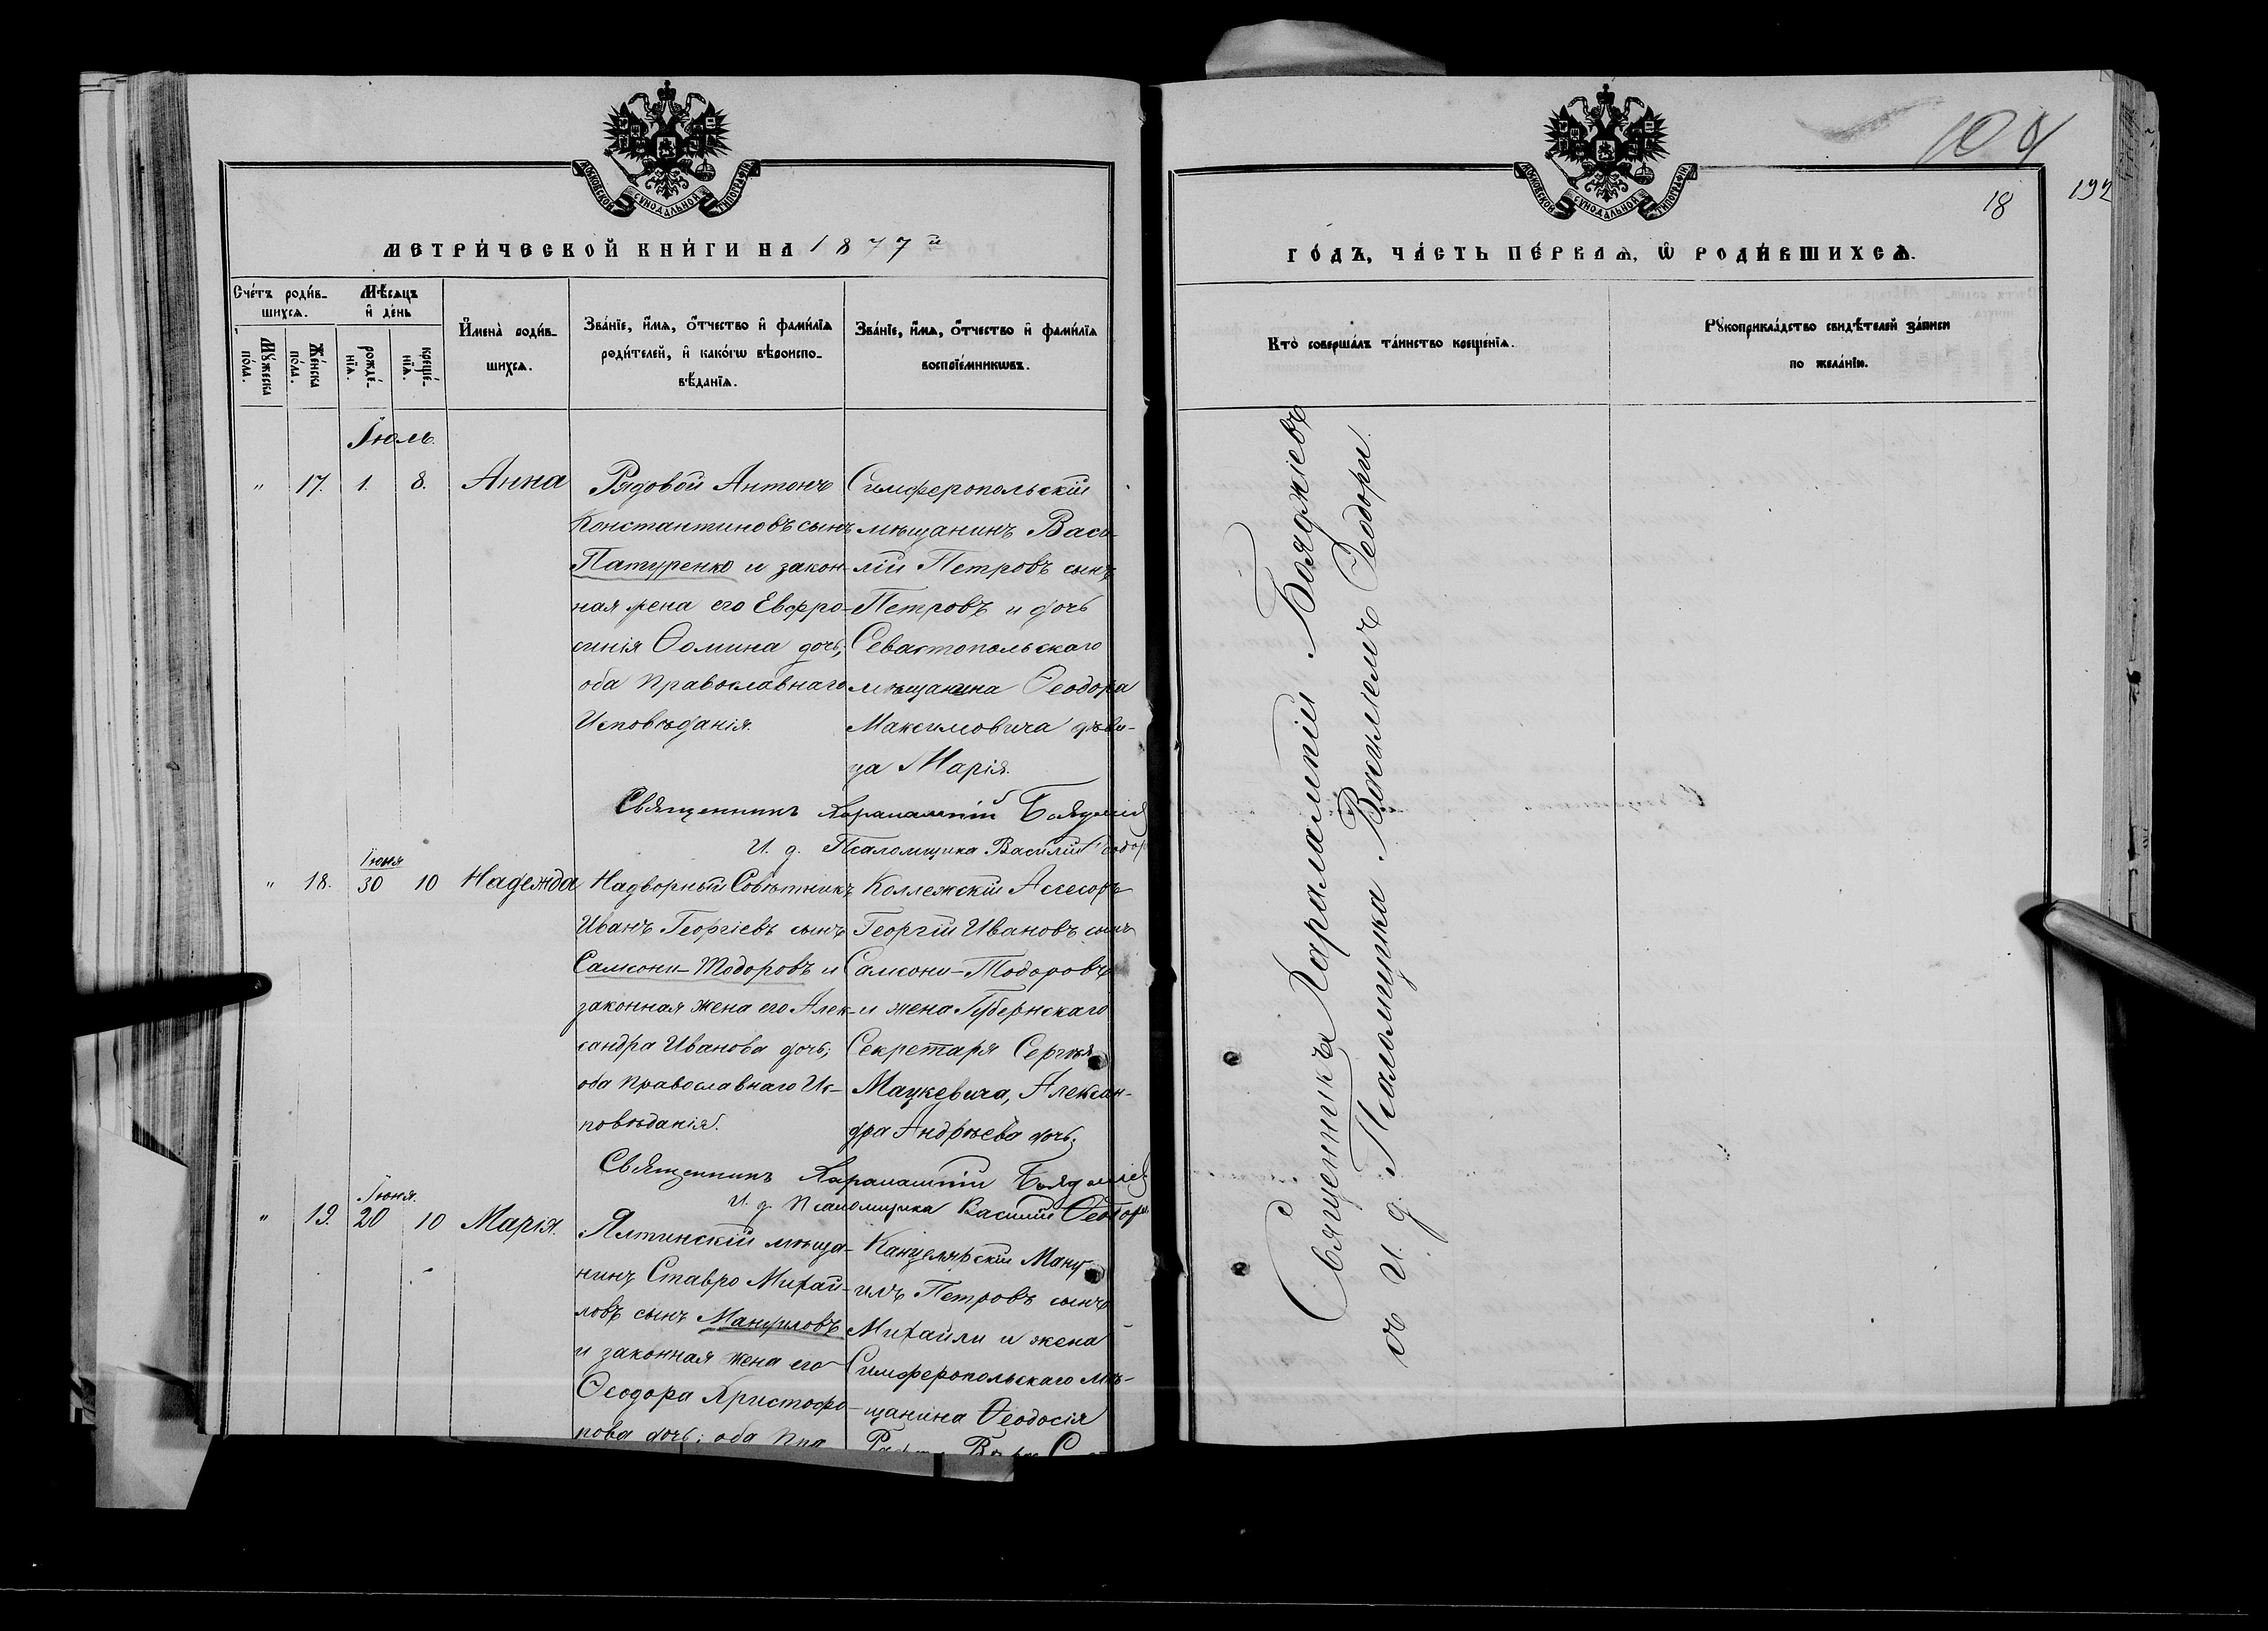 МОСКОВСКОЙ СѴНОДАЛЬНОЙ ТИПОГРАФІИ
МЕТРИ́ЧЕСКОЙ КНИ́ГИ НА 1877й
Сче́тъ роди́в-
шихсѧ.
Мѣ́сѧцъ
и҆ де́нь
Мꙋ́жеска
по́ла.
Же́нска
по́ла.
рожде́-
нїѧ.
креще́-
нїѧ.
И҆мена̀ роди́в-
шихсѧ.
Зва́нїе, и҆́мѧ, о҆́тчество и҆ фами́лїѧ
роди́телей, и҆ како́гѡ вѣ̀роиспо-
вѣ́данїѧ.
Зва́нїе, и҆́мѧ, о҆́тчество и҆ фами́лїѧ
воспрїе́мникѡвъ.
Іюль.
" 17. 1. 8. Анна
Рядовой Антонъ
Константиновъ сынъ
Патуренко и закон-
ная жена его Евфро-
синія Ѳомина дочь;
оба Православнаго
Исповѣданія.
Симферопольскій
мѣщанинъ Васи-
лій Петровъ сынъ
Петровъ и дочь
Севастопольскаго
мѣщанина Ѳеодора
Максимовича дѣви-
ца Марія.
Священникъ Харалампій
И. д. Псаломщика Василій
Іюня
" 18. 30 10 Надежда
Надворный Совѣтникъ
Иванъ Георгіевъ сынъ
Самсони-Тодоровъ и
законная жена его Алек-
сандра Иванова дочь;
оба Православнаго Ис-
повѣданія.
Коллежскій Ассесоръ
Георгій Ивановъ сынъ
Самсони-Тодоровъ
и жена Губернскаго
Секретаря Сергѣя
Мацкевича, Алексан-
дра Андрѣева дочь.
Священникъ Харалампій Бояджіев
И. д. Псаломщика Василій Ѳеодори
Іюня.
" 19. 20 10 Марія.
Ялтинскій мѣща-
нинъ Ставро Михай-
ловъ сынъ Мануиловъ
и законная жена его
Ѳеодора Христофо-
рова дочь; оба Пра
Канцелярскій Ману-
илъ Петровъ сынъ
Михайли и жена
Симферопольскаго мѣ-
щанина Ѳеодосія
104
18
192
МОСКОВСКОЙ СѴНОДАЛЬНОЙ ТИПОГРАФІИ
ГО́ДЪ, ЧА́СТЬ ПЕ́РВАѦ, Ѡ҆ РОДИ́ВШИХСѦ.
Кто̀ соверша́лъ та́инство креще́нїѧ.
Рꙋкоприкла́дство свидѣ́телей за́писи
по жела́нїю.
Священникъ Харалампій Бояджіевъ
съ И. д. Псаломщика Василіемъ Ѳеодори.